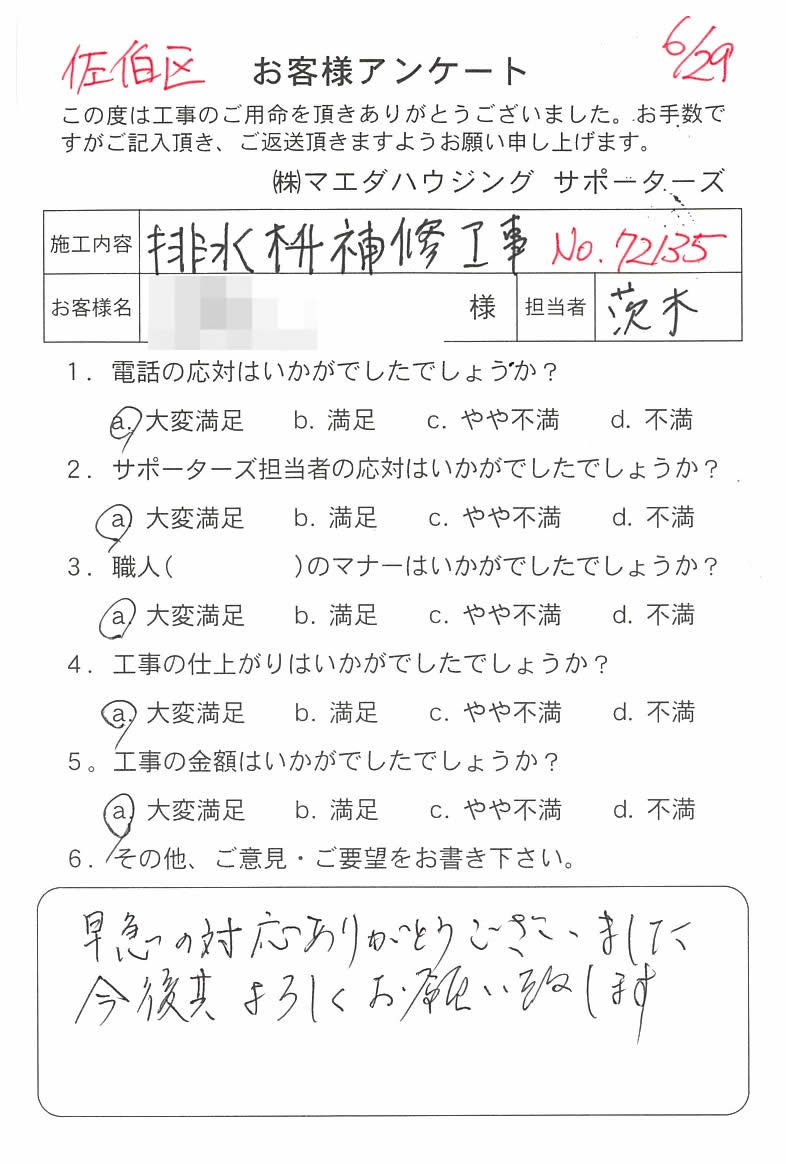 佐伯区 お客様アンケート 6/29
この度は工事のご用命を頂きありがとうございました。お手数で
すがご記入頂き、ご返送頂きますようお願い申し上げます。
㈱マエダハウジング サポーターズ
施工内容 排水桝補修工事 No.72135
お客様名 様 担当者 茨木
1. 電話の応対はいかがでしたでしょうか？
a. 大変満足 b. 満足 c. やや不満 d. 不満
2. サポーターズ担当者の応対はいかがでしたでしょうか？
a. 大変満足 b. 満足 c. やや不満 d. 不満
3. 職人( )のマナーはいかがでしたでしょうか？
a. 大変満足 b. 満足 c. やや不満 d. 不満
4. 工事の仕上がりはいかがでしたでしょうか？
a. 大変満足 b. 満足 c. やや不満 d. 不満
5。工事の金額はいかがでしたでしょうか？
a. 大変満足 b. 満足 c. やや不満 d. 不満
6. その他、ご意見・ご要望をお書き下さい。
早急の対応ありがとうございました
今後共よろしくお願い致します